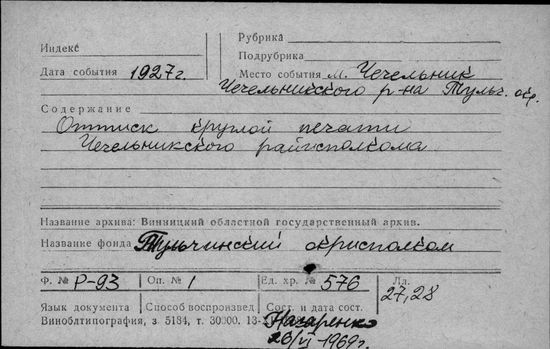 Рубрика
Индекс
Подрубрика
Дата события 1927 г. Место события м. Чечельник
Чечельникского р-на Тульч. окр.
Содержание
Оттиск круглой печати
Чечельникского райисполкома
Название архива: Винницкий областной государственный архив.
Название фонда Тульчинский окрисполком
Ф. № Р-93 Оп. № 1 Ед. хр. № 576 Лл. 27,28
Язык документа Способ воспроизвед Сост. и дата сост.
Виноблтипография, з. 5184, т. 30000. 13-
Назаренко
26/VI-1969г.